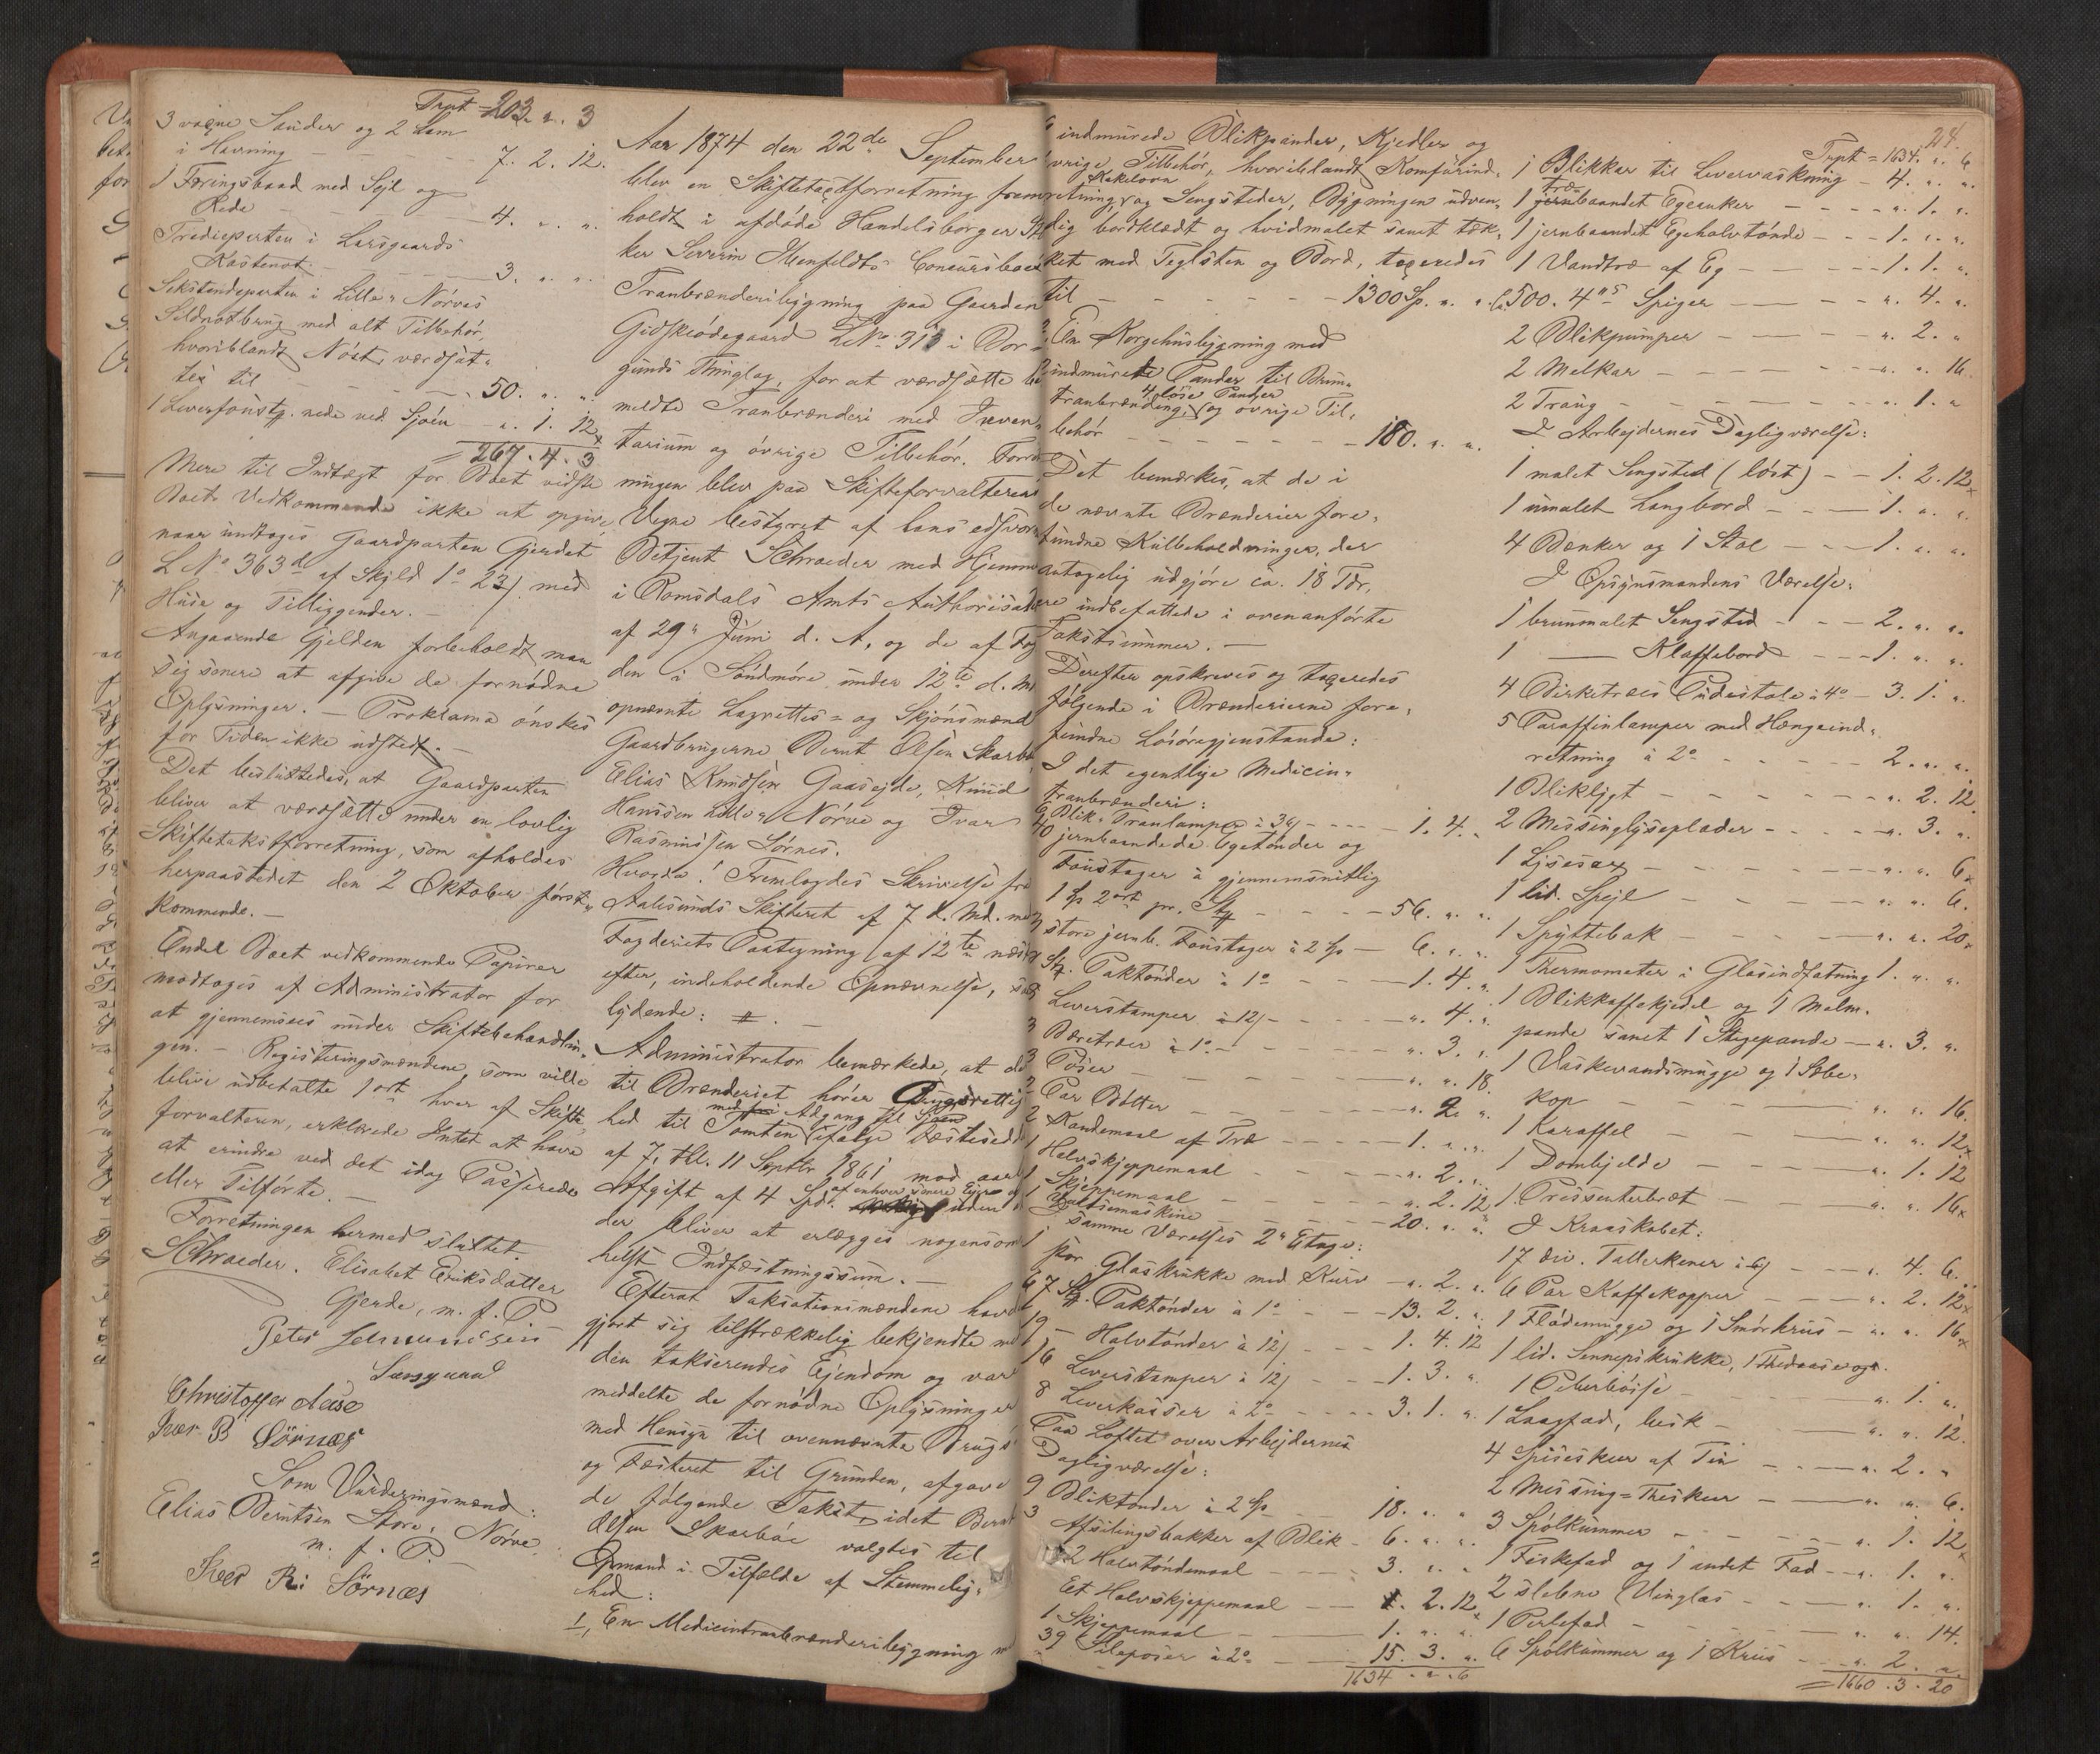 Trpt = 203. ". 3
3 voxne Sauder og 2 Lam
i Havning - - - - 7. 2. 12.
1 Færingsbaad med Sejl og
Rede - - - - 4. ". ".
Tredieparten i Larsgaards
Kastenot - - - - 3. ". ".
Sekstendeparten i Lille-Nörves
Sildnotbrug med alt Tilbehör,
hvoriblandt Nöst, værdsat-
tes til - - - - 50. ". ".
1 Leverfoustg. nede ved Sjöen - ". 1. 12
= 267. 4. 3
Mere til Indtægt for Boet vidste
Boets Vedkommende ikke at opgive,
naar undtages Gaardparten Gjerdet
L No 363d af Skyld 1o 23/ med
Huse og Tilliggender. -
Angaaende Gjelden forbeholdt man
sig senere at afgive de fornødne
Oplysninger. - Proklama önskes
for Tiden ikke udstedt. -
Det besluttedes, at Gaardparten
bliver at værdsætte under en lovlig
Skiftetakstforretning, som afholdes
herpaastedet den 2 Oktober först-
kommende. -
Endel Boet vedkommende Papirer
modtoges af Administrator for
at gjennemsees under Skiftebehandlin-
gen. - Registeringsmændene, som ville
blive udbetalte 1 ort hver af Skifte-
forvalteren, erklærede Intet at have
at erindre ved det idag Passerede
eller Tilförte. -
Forretningen hermed sluttet.
Schroeder. Elisabet Eriksdatter
Gjerde, m. f. P.
Peter
Christoffer Aase
Iver R Sörnes
Som Vurderingsmænd:
Elias Berntsen Store-Nörve,
m. f. P. -
Iver R: Sörnæs
Aar 1874 den 22de September
blev en Skiftetaxtforretning frem-
holdt i afdöde Handelsborger
ker Severin Menfeldts Concursboes
Tranbrænderibygning paa Gaarden
Gidskeödegaard LNo 313 i Bor-
gunds Thinglag, for at værdsætte be-
meldte Tranbrænderi med Inven-
tarium og övrige Tilbehör. Forret-
ningen blev paa Skifteforvalterens
Vegne bestyret af hans edsvorne
Betjent Schroeder med Hjemmel
i Romsdals Amts Authorisation
af 29. Juni d. A. og de af Fog-
den i Söndmöre under 12te d. M.
opnævnte Lagrettes- og Skjönsmænd
Gaardbrugerne Bernt Olsen Skarbö,
Elias Knudsen Gaasejde, Knud
Hanssen Lille-Nörve og Ivar
Rasmussen Sörnes.
Hvorda! Fremlagdes Skrivelse fra
Aalesunds Skifteret af 7 d. Md. med
Fogderiets Paategning af 12te næst-
efter, indeholdende Opnævnelse, saa-
lydende: #. -
Administrator bemærkede, at der
til Brænderiet hörer Brugsrettig-
med fri Adgang til Sjöen
hed til Tomten ifölge Fæsteseddel
af 7, thl. 11 Septbr 1861 mod aarl.
Afgift af 4 Spd. af enhver senere Ejer og uden
der bliver at erlægges nogensom-
helst Indfæstningssum. -
Efterat Taksationsmændene havde
gjort sig tilstrækkelig bekjendte med
den takserendes Ejendom og var
meddelte de fornødne Oplysninger
med Hensyn til ovennævnte Brugs-
og Fæsteret til Grunden, afgave
de fölgende Takst, idet Bernt
Olsen Skarböe valgtes til
Opmand i Tilfælde af Stemmelig-
hed:
I, En Medicintranbrænderibygning med
6 indmurede Blikpander, Kjedler og
övrige Tilbehör, hvoriblandt Komfurind-
Kakelovn
retning, og Sengsteder, Bygningen udven-
dig bordklædt og hvidmalet samt tæk-
ket med Teglsten og Bord, taxeredes
til - - - - 1300 Sp. ". ".
2, En Norgehusbygning med
indmurede Pander til Brun-
4 löse Pander
tranbrænding, og övrige Til-
behör - - - - 180. ". ".
Det bemærkes, at de i
de nævnte Brænderier fore-
fundne Kulbeholdninger, der
antagelig udgjöre ca. 18 Tdr.,
ere indbefattede i ovenanförte
Takstsummer. -
Derefter opskreves og taxeredes
fölgende i Brænderierne fore-
fundne Lösöregjenstande:
I det egentlige Medicin-
tranbrænderi:
6 Blik-Tranlamper à 3/ - - - - 1. 4. "
40 jernbaandede Egetönder og
Foustager à gjennemsnitlig
1 Sp 2 ort pr. Stk - - - - 56. ". ".
3 store jernb. Foustager à 2 Sp - 6. ". ".
Stk. Paktönder à 1o - - - 1. 4. ".
Leverstamper à 12/ - - - - ". 4. ".
3 Bæretræer à 1o - - - - ". 3. ".
3 Pöser - - - - ". ". 18.
2 Par Bötter - - - - ". 2. ".
2 Kandemaal af Træ - - - - 1. ". ".
1 Halvskjeppemaal - - - - ". 2. ".
1 Skjeppemaal - - - - ". 2. 12
1 - - - - 20. ". ".
I samme Værelses 2. Etage:
1 stor Glaskrukke med Kurv - ". 2. ".
67 Stk. Paktönder à 1o - - - 13. 2. ".
19 - Halvtönder à 12/ - - - 1. 4. 12
16 Leverstamper à 12/ - - - 1. 3. ".
8 Leverkasser à 2o - - - - 3. 1. ".
Paa Loftet over Arbejdernes
Dagligværelse:
9 Bliktönder à 2 Sp - - - 18. ". ".
3 Afsilingsbakker af Blik - 6. ". ".
2 Halvtöndemaal - - - - 3. ". ".
Et Halvskjeppemaal - - - ". 2. 12
1 Skjeppemaal - - - - 1. ". ".
39 Silaposer à 2o - - - 15. 3. ".
1634. ". 6
24.
Trpt = 1634. ". 6
1 Blikkar til Levervaskning - 4. ". ".
træ-
1 baandet Egeanker - - - - ". 1. ".
1 jernbaandet Egehalvtönde - - - 1. ". ".
1 Vandtræ af Eg - - - - 1. 1. ".
500. 4" Spiger - - - ". 4. ".
2 Blikpumper - - - ". 2. "
2 Melkar - - - - ". ". 16.
2 Traug - - - - ". 1. "
I Arbejdernes Dagligværelse:
1 malet Sengsted (löst) - - 1. 2. 12
1 umalet Langbord - - - 1. ". ".
4 Bænker og 1 Stol - - - 1. ". ".
I Opsynsmandens Værelse:
1 brunmalet Sengsted - - - 2. ". ".
1 — Klaffebord - - - 1. ". ".
4 Birketræes Pudestole à 4o - 3. 1. ".
5 Paraffinlamper med Hængeind-
retning à 2o - - - - 2. ". ".
1 Bliklygt - - - - ". 2. 12.
2 Messinglyseplader - - - - ". 3. ".
1 Lysesax - - - - ". ". 6
1 lid. Spejl - - - - ". ". 6.
1 Spyttebak - - - - ". ". 20
1 Thermometer i Glasindfatning 1. ". ".
1 Blikkaffekjedel og 1 Malm-
pande samt 1 Stegepande - ". 3. ".
1 Vaskevandsmugge og 1 Sæbe-
kop - - - - ". ". 16.
1 Karaffel - - - ". ". 12
1 Dombjelde - - - ". 1. 12
1 Pressenterbræt - - - ". ". 16
I Kraaskabet:
17 div. Tallerkener à 6/ - - - ". 4. 6.
6 Par Kaffekopper - - - ". 2. 12
1 Flödemugge og 1 Smörkrus - ". ". 16
1 lid. Sennepskrukke, 1 Thedaase og
1 Peberbösse - - - - ". 1. ".
1 Laagfad, besk - - - ". ". 12.
4 Spiseskeer af Tin - - - ". 2. "
2 Messing-Theskeer - - - ". ". 6.
3 Spölkummer - - - - ". 1. 12
1 Fiskefad og 1 andet Fad - - ". 1. ".
2 slebne Vinglas - - - ". 1. ".
1 Perlefad - - - - ". ". 14.
6 Spölkummer og 1 Krus - - - ". 2. ".
= 1660. 3. 20